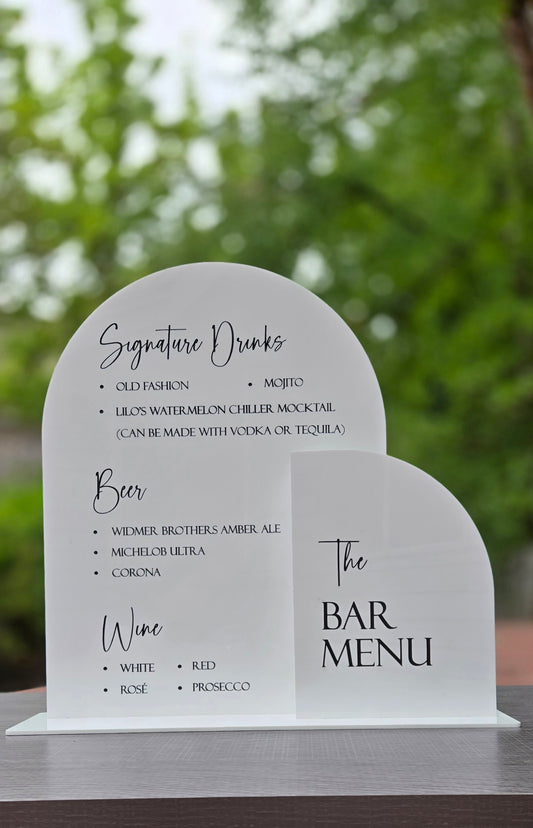 Signature Drinks
• OLD FASHION • MOJITO
• LILO'S WATERMELON CHILLER MOCKTAIL
(CAN BE MADE WITH VODKA OR TEQUILA)
Beer
• WIDMER BROTHERS AMBER ALE
• MICHELOB ULTRA
• CORONA
Wine
• WHITE • RED
• ROSÉ • PROSECCO
The
BAR
MENU